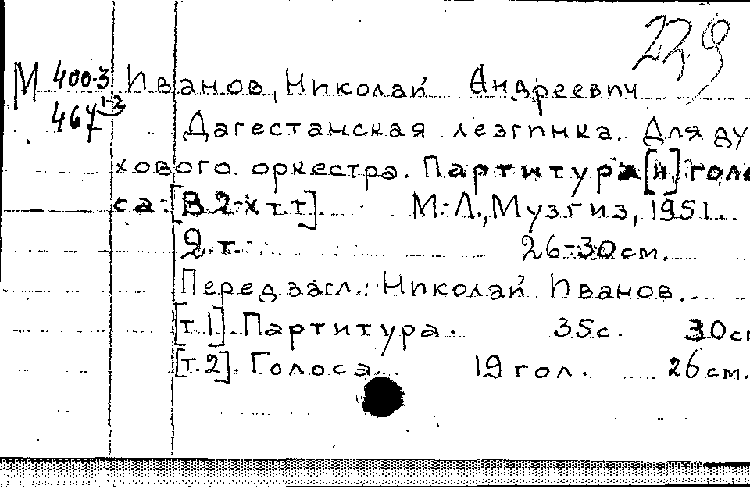 229
М 400-3 Иванов, Николай Андреевич
467 1-2
Дагестанская лезгинка. Для ду
хового оркестра. Партитура [и] голо
са. [В 2-х т.т.]. М.-Л., Музгиз, 1951.
2 т. 26-30 см.
Перед загл.: Николай Иванов.
[т. 1]. Партитура. 35 с. 30 см
[т. 2]. Голоса. 19 гол. 26 см.